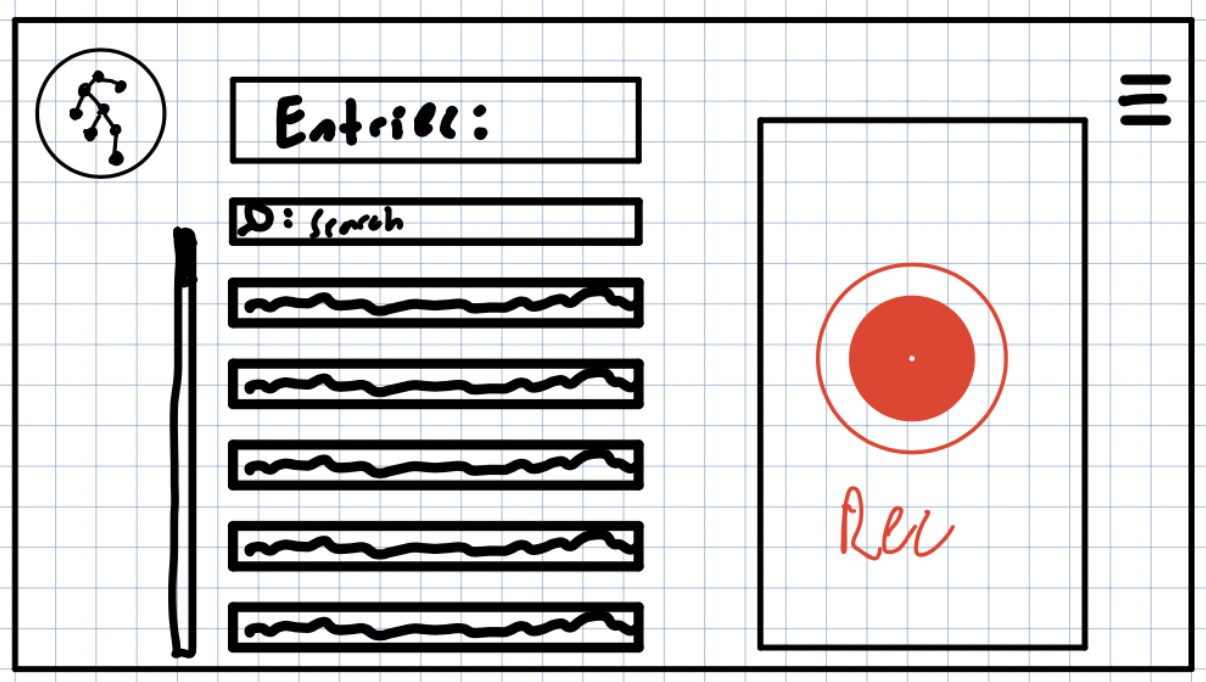 Entries:
: Search
Rec